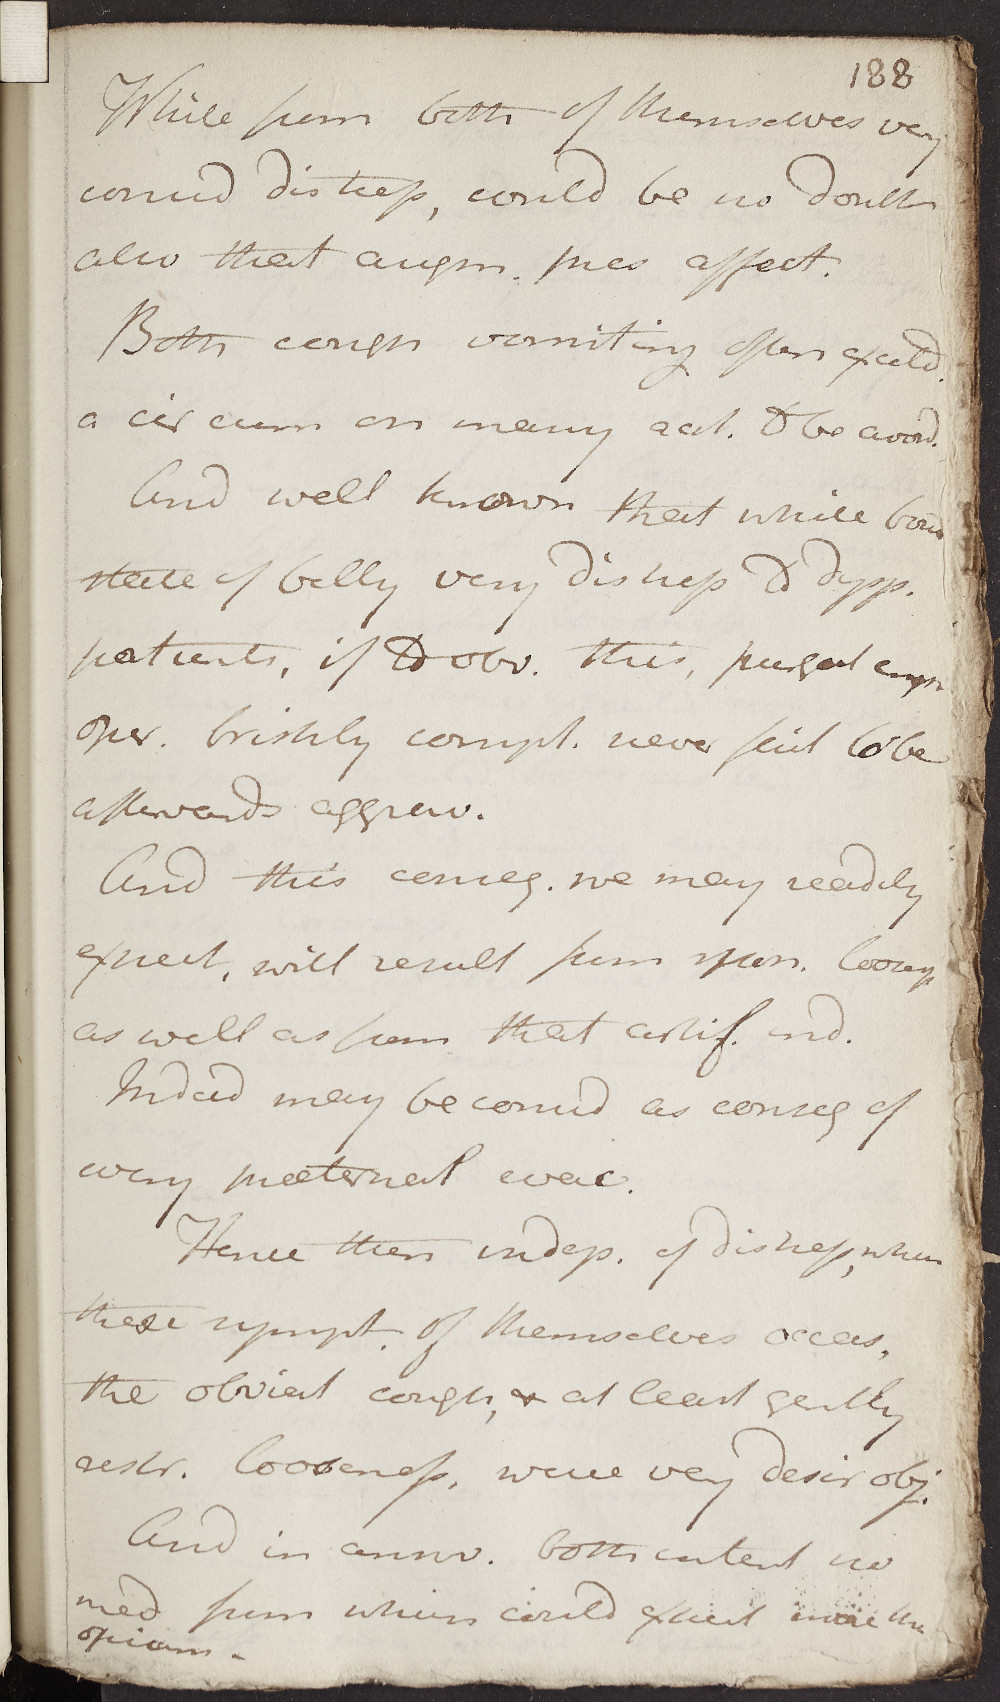 188
While from both of themselves very
consid distress, could be no doubt
also that augm. pres affect.
Both cough vomiting often excited.
a circum on many acct. to be avoid.
And well known that while bound
state of belly very distress to dysp.
patients, if to obv. this, purgat emp
oper. briskly compt. never fail to be
afterwards aggrav.
And this conseq. we may readily
expect, will result from spon. loosep
as well as from that artif. ind.
Indeed may be considd as conseq of
every preternat evac.
Hence then indep. of distress, when
these sympt. of themselves occas,
the obviat cough, & at least gently
restr. looseness, were very desir obj.
And in answ. both intent no
med from whim could expect more thn
opium.